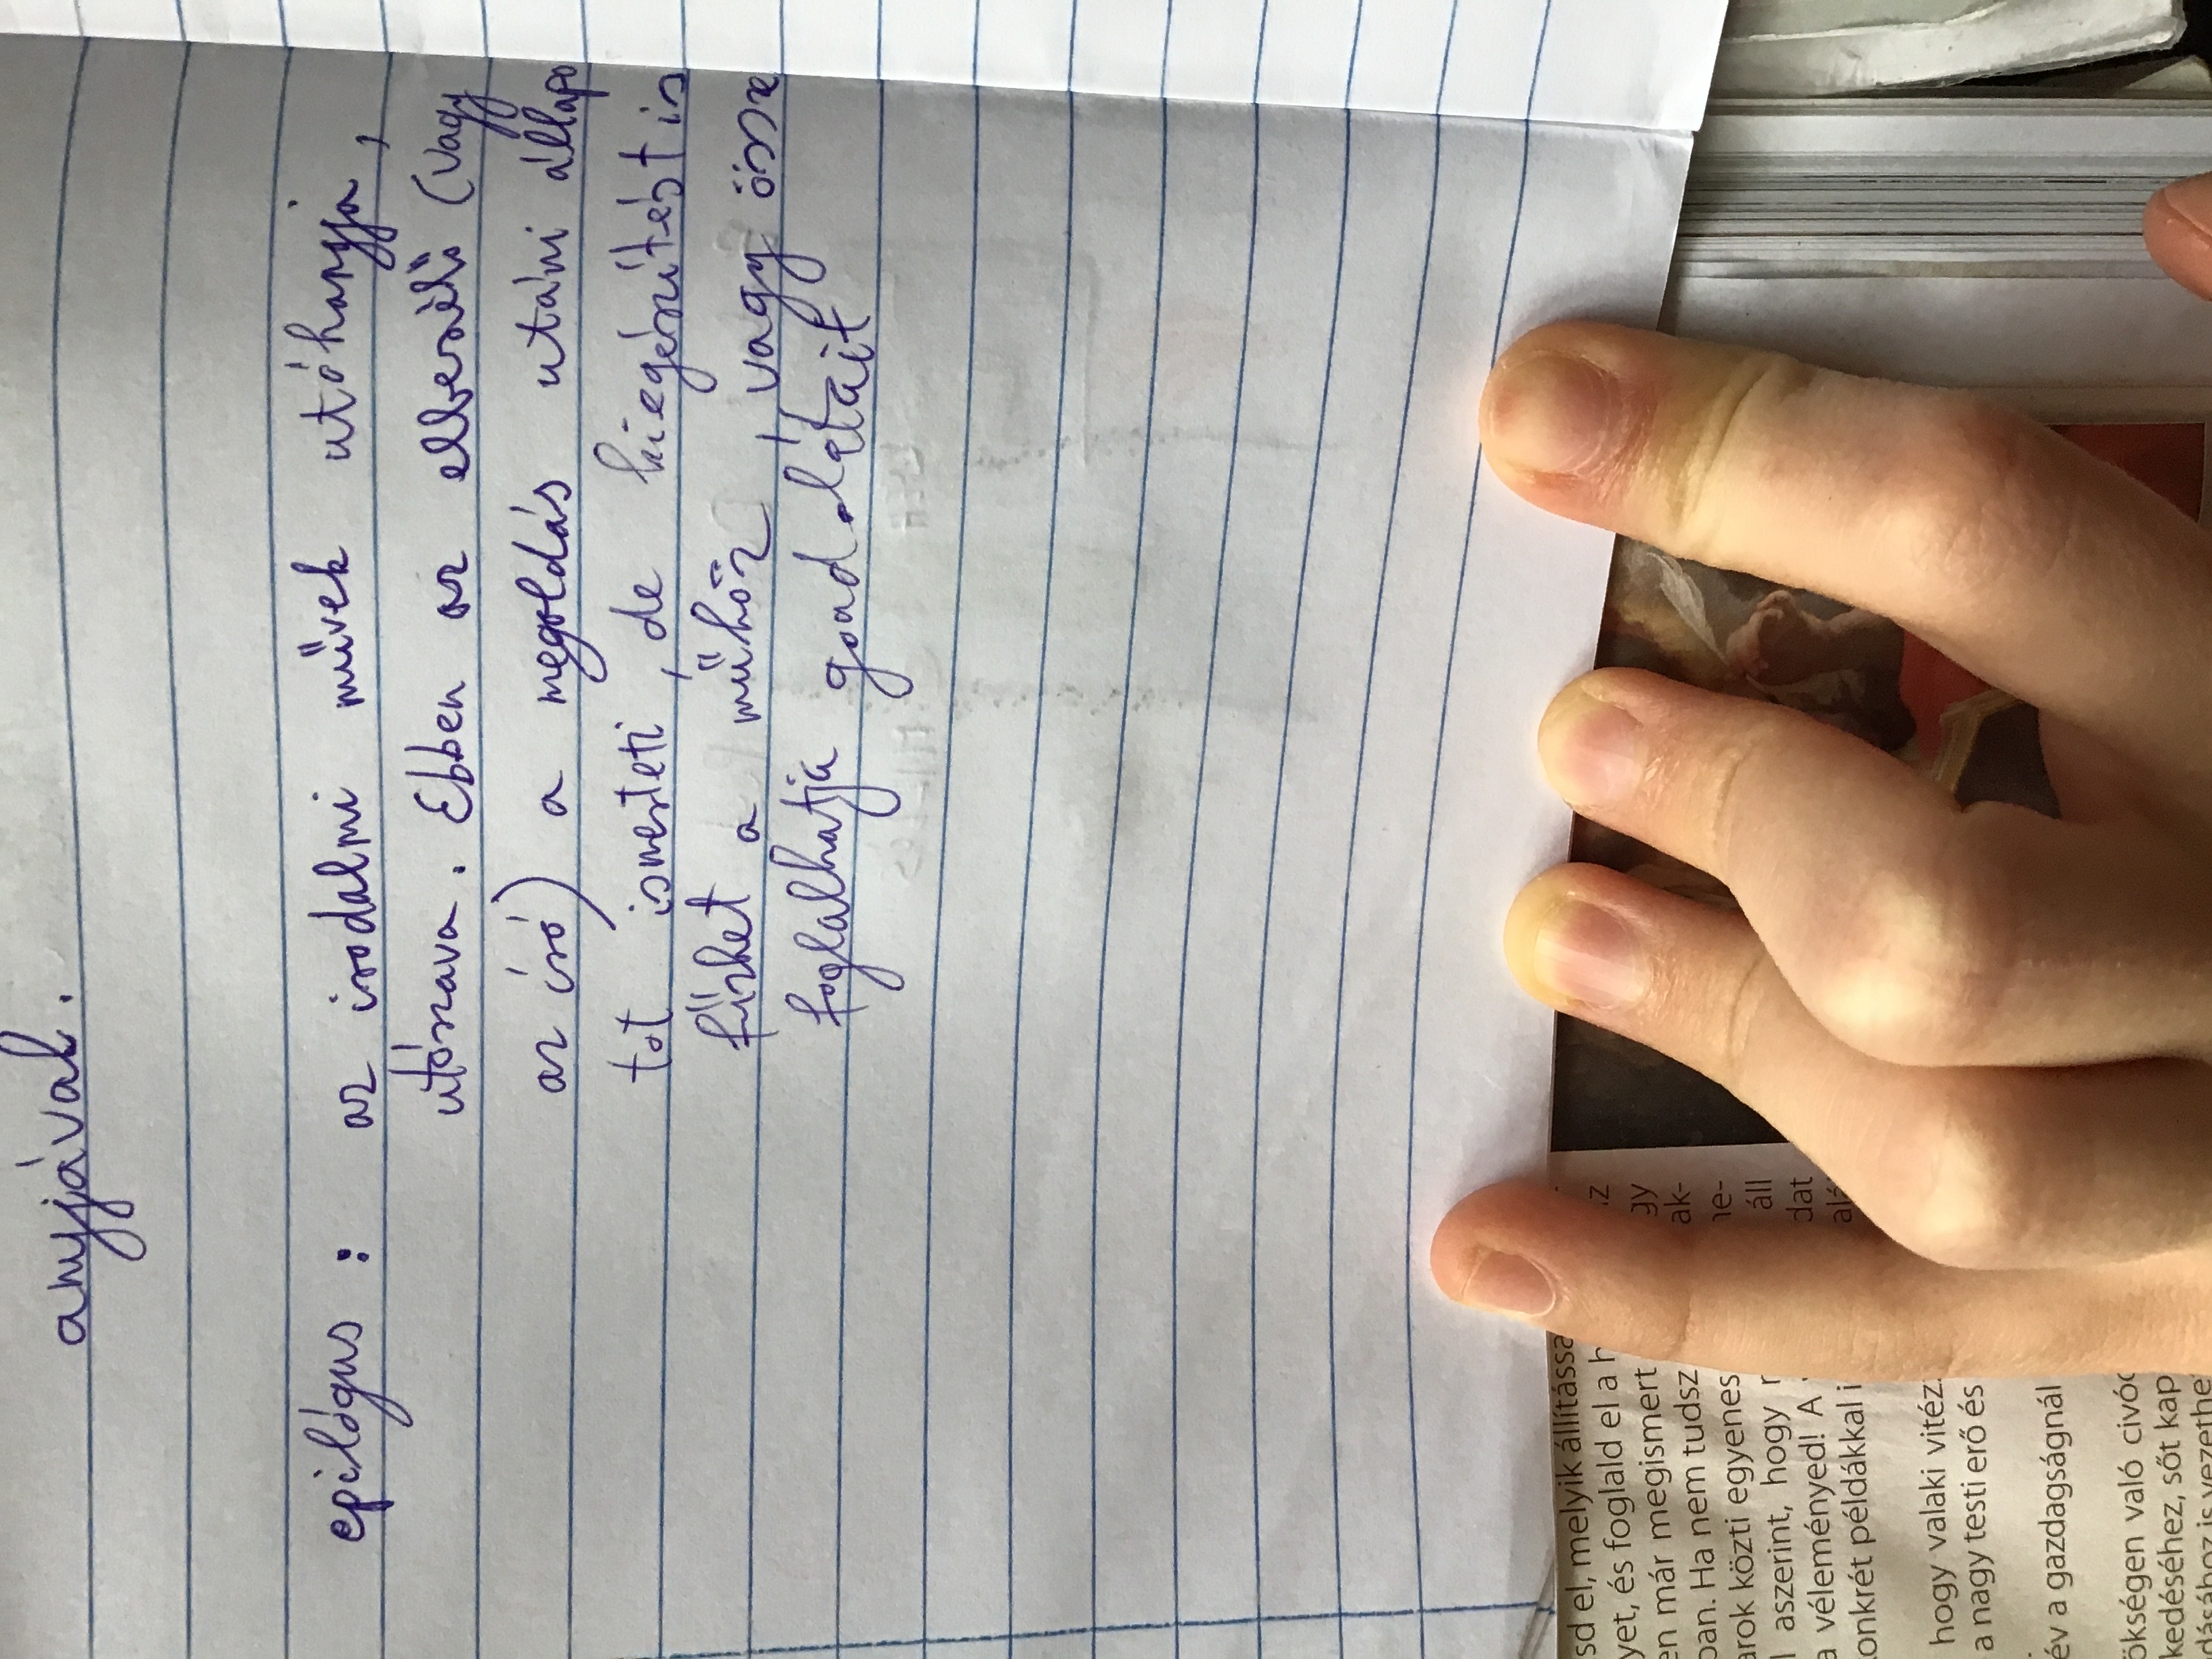 anyjával.
epilógus: az irodalmi művek utóhangja,
utószava. Ebben az elbeszélő (vagy
az író) a megoldás utáni állapo
tot ismerteti, de kiegészítést is
fűzhet a műhöz vagy össze
foglalhatja gondolatait
sd el, melyik állítássa
yet, és foglald el a h
en már megismert
ban. Ha nem tudsz
arok közti egyenes
l aszerint, hogy
a véleményed! A
onkrét példákkal i
hogy valaki vitéz
a nagy testi erő és
év a gazdagságnál
ökségen való civó
kedéséhez, sőt kap
dásához is vezethe
gy
ak-
ne-
áll
dat